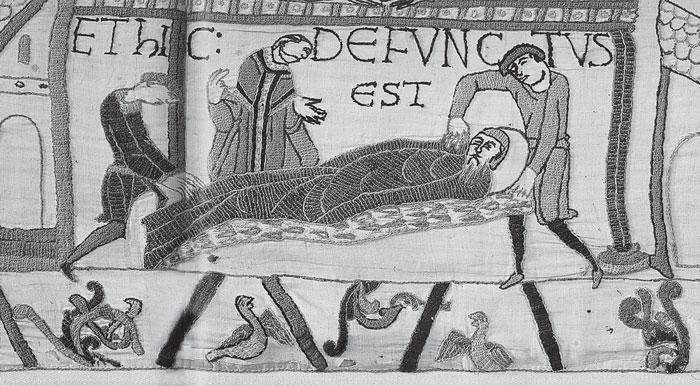 ET hIC: DEFVNCTVS
EST